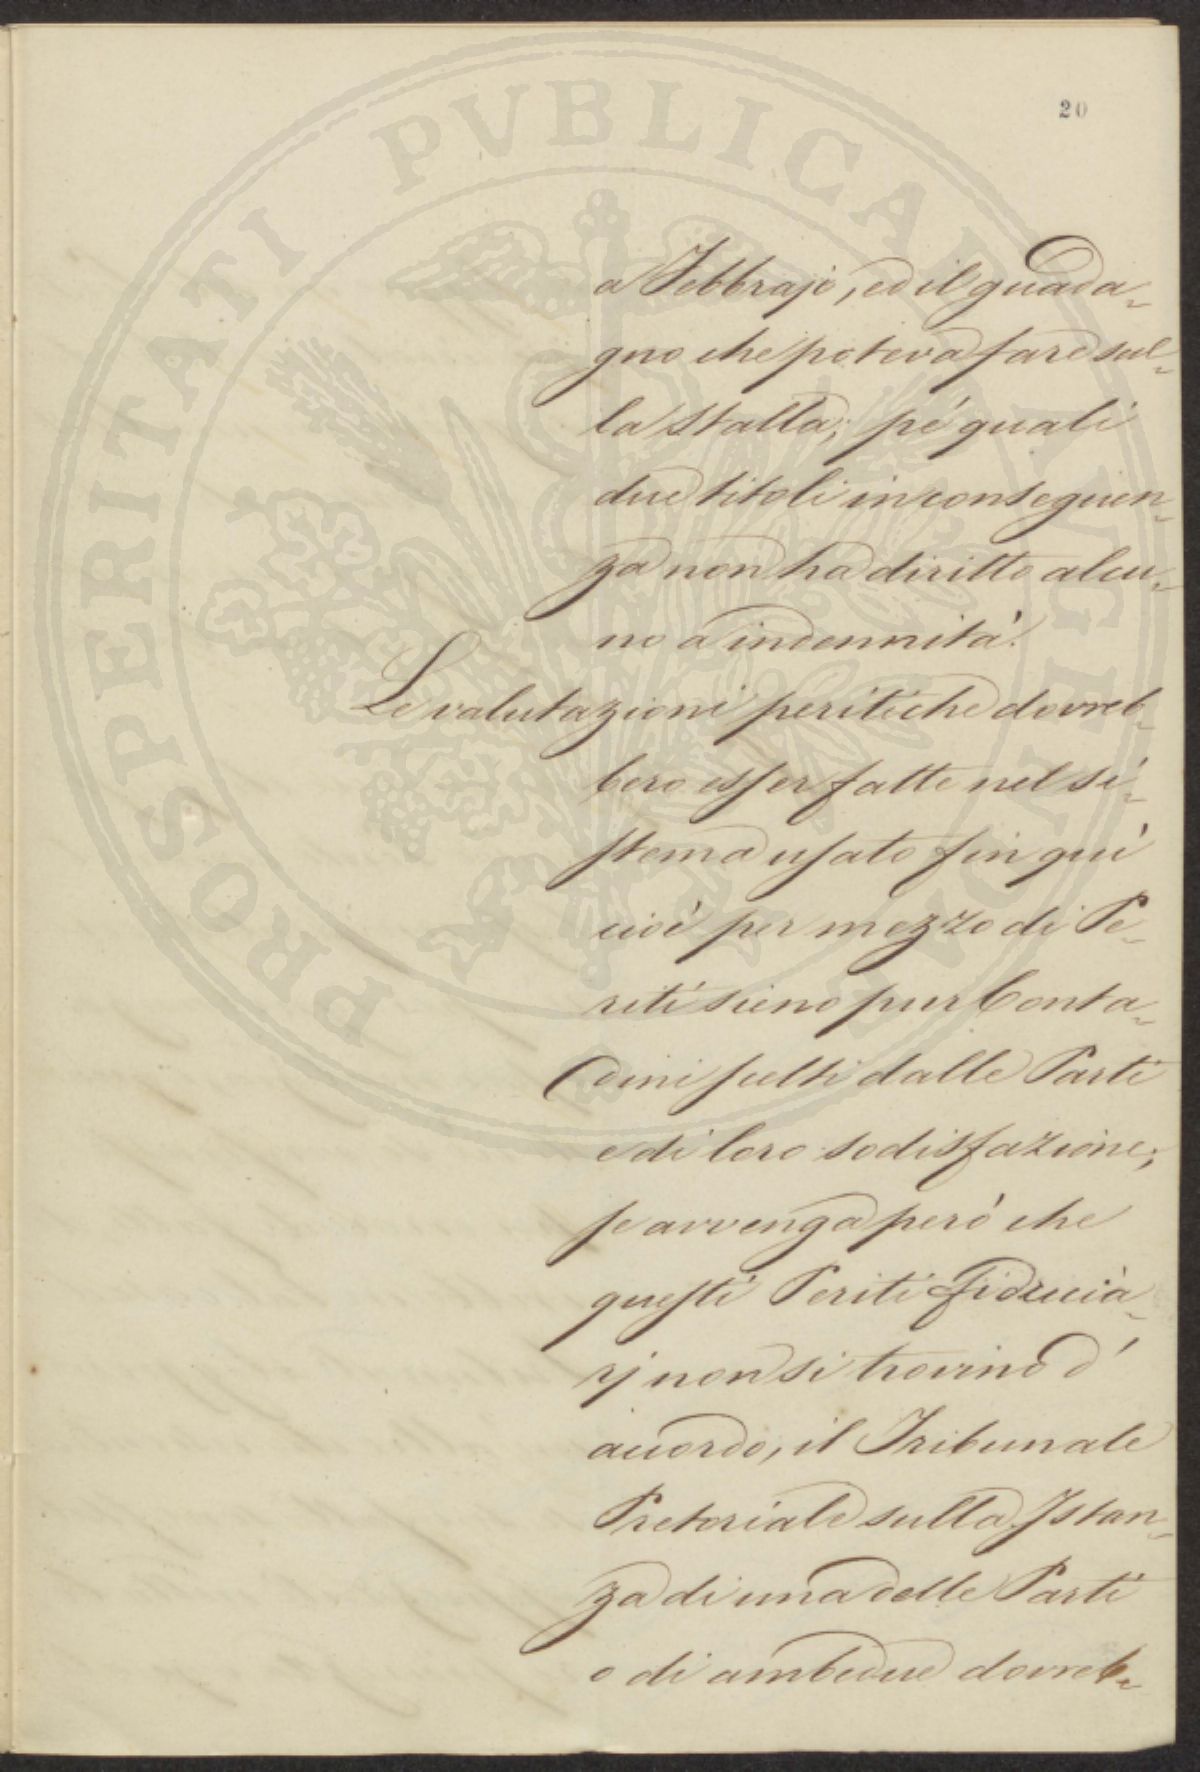 PROSPERITATI PVBLICAE AVGENDAE
20
a Febbrajo, ed il guada=
gno che poteva fare sul=
la Stalla; pe' quali
due titoli in conseguen=
za non ha diritto alcu=
no a indennità.
Le valutazioni peritiche dovreb=
bero esser fatte nel si=
stema usato fin quì
cioè per mezzo di Pe=
riti sieno pur Conta=
dini scelti dalle Parti
e di loro sodisfazione;
se avvenga però che
questi Periti fiducia=
rj non si trovino d'
accordo, il Tribunale
Pretoriale sulla Istan=
za di una delle Parti
o di ambedue dovreb=